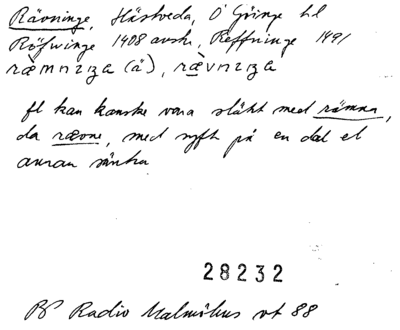 Rävninge, Hästveda, Ö Göinge hd
Röfwinge 1408 avskr, Reffninge 1491
ræmnıza (å), rævnıza
fl kan kanske vara släkt med rämna,
da rævne, med syft på en dal el
annan sänka
28232
BP Radio Malmöhus vt 88